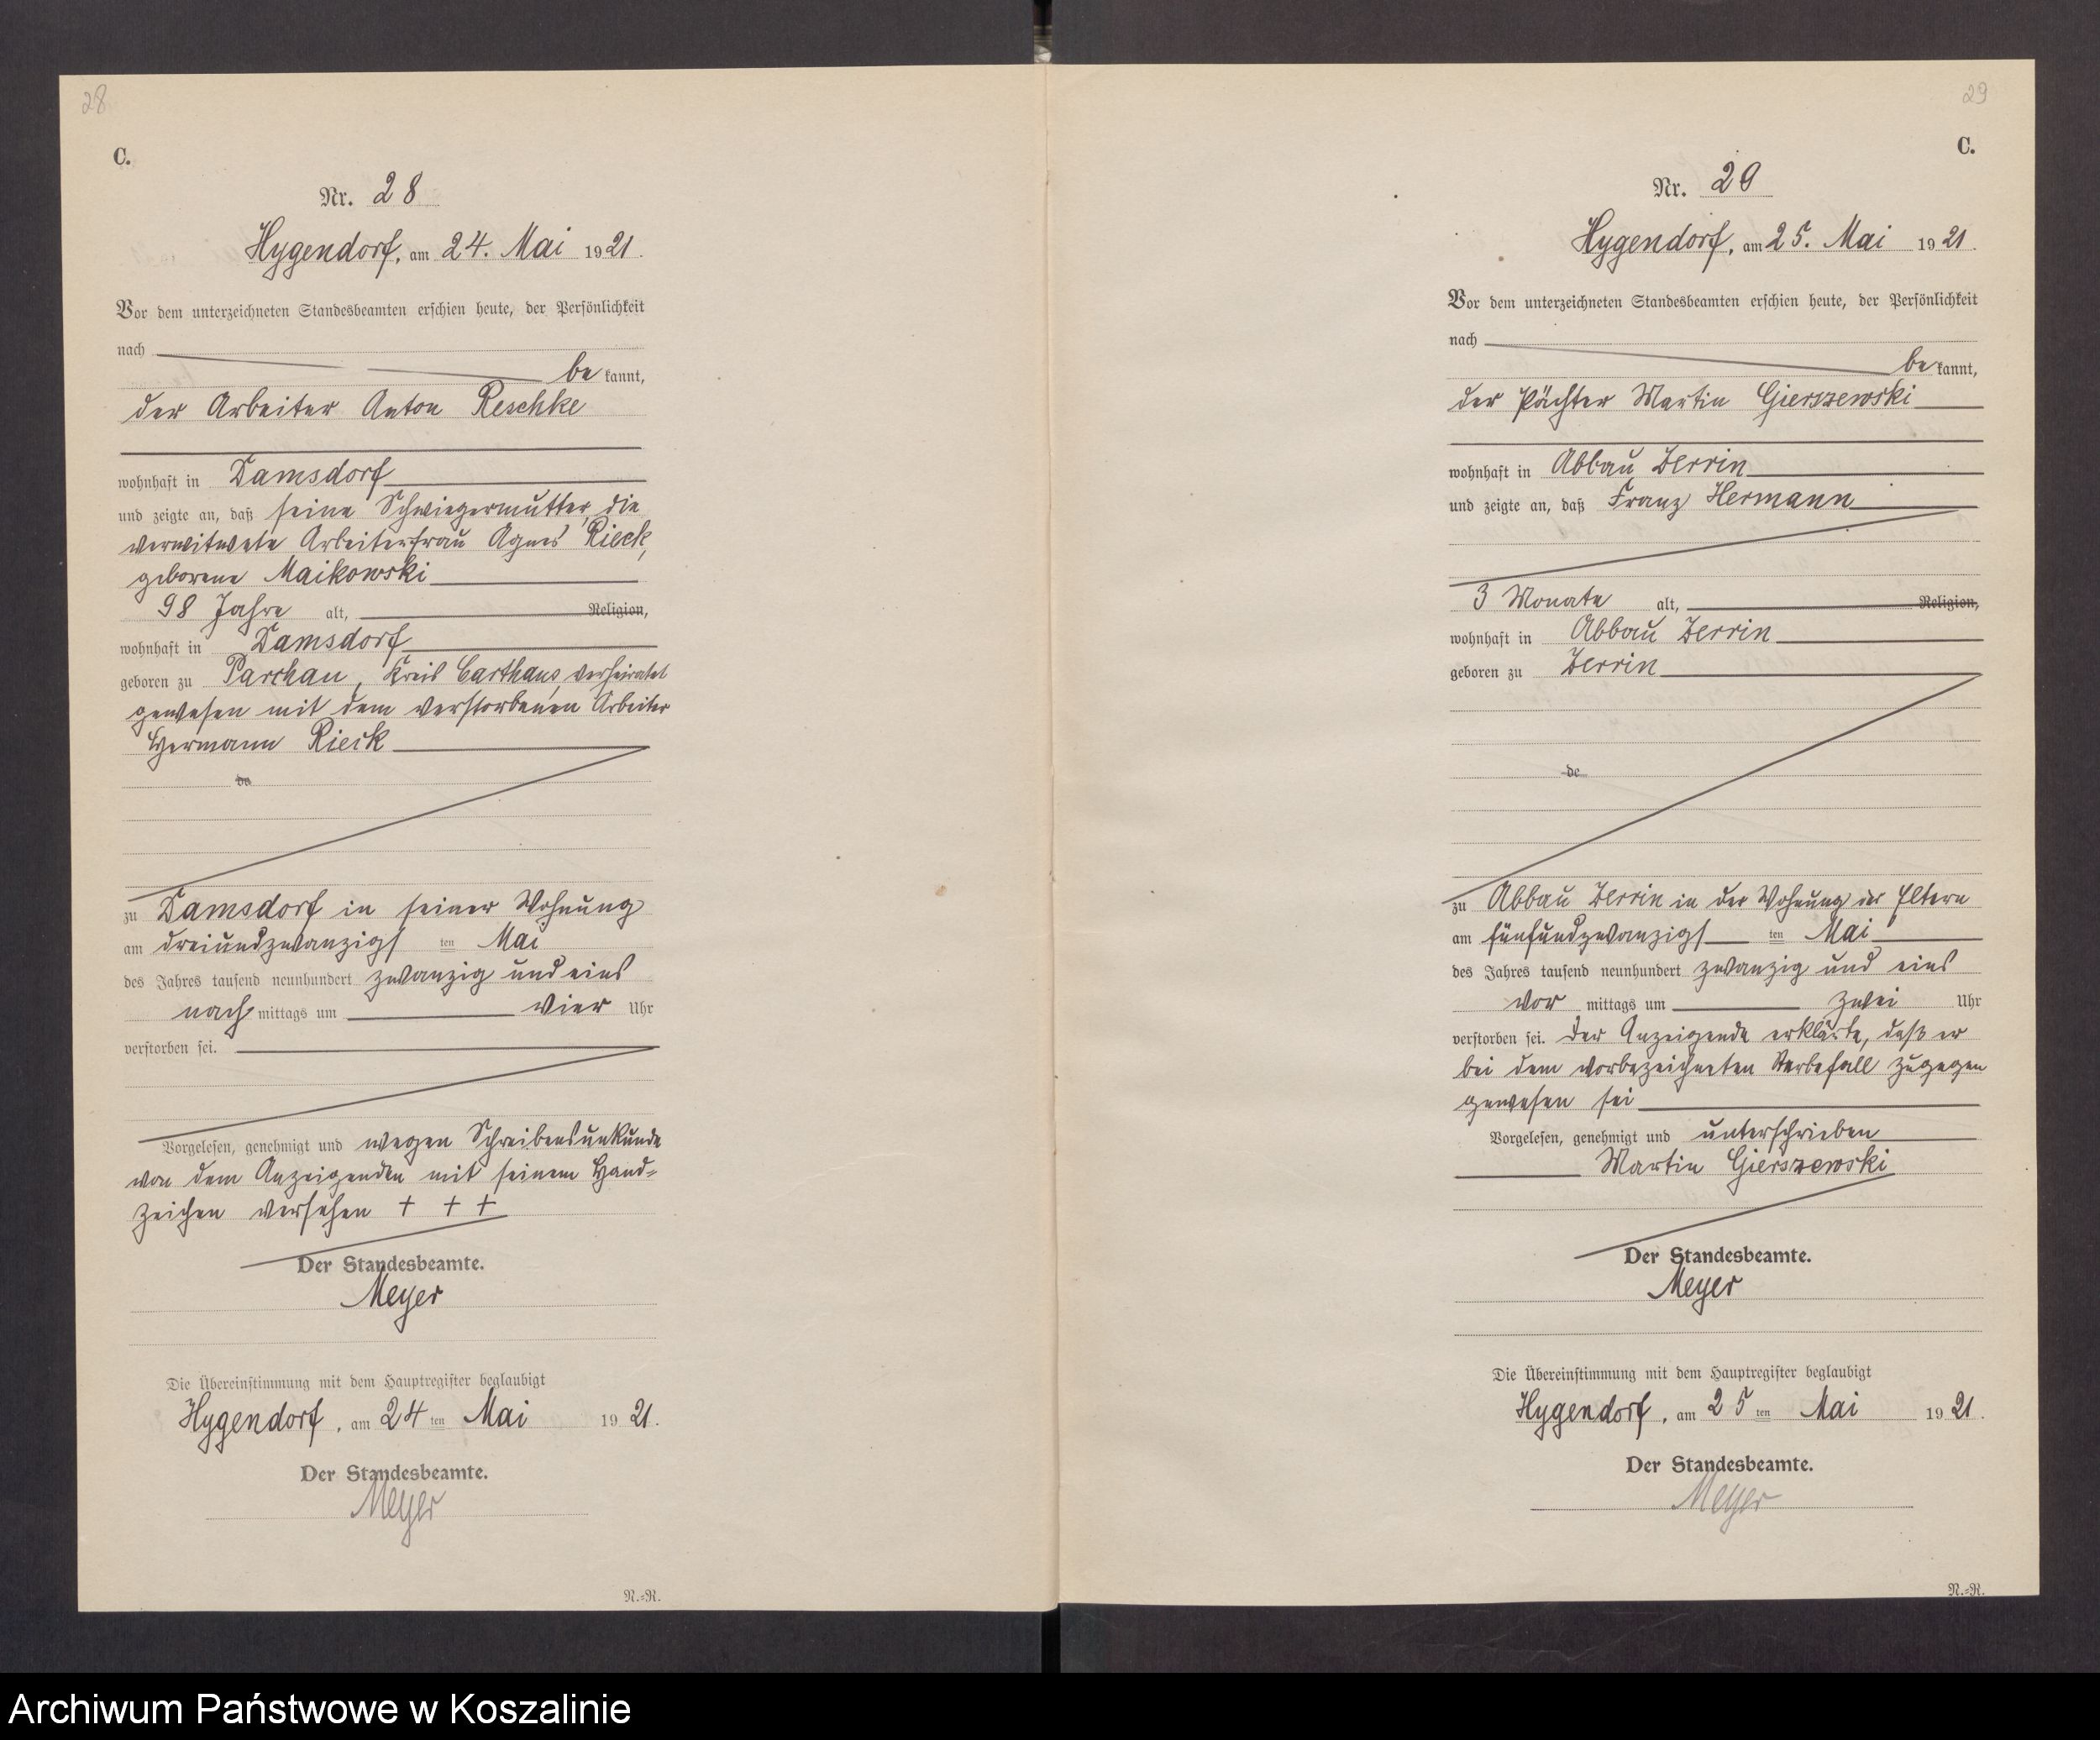 28
C.
Nr. 28
Hygendorf, am 24. Mai 1921.
Vor dem unterzeichneten Standesbeamten erschien heute, der Persönlichkeit
nach
be kannt,
der Arbeiter Anton Reschke
wohnhaft in Damsdorf
und zeigte an, daß seine Schwiegermutter, die
verwitwete Arbeiterfrau Agnes Rieck,
geborene Maikowski
98 Jahre alt, Religion,
wohnhaft in Damsdorf
geboren zu Parchau, Kreis Carthaus, verheiratet
gewesen mit dem verstorbenen Arbeiter
Hermann Rieck
de
zu Damsdorf in seiner Wohnung
am dreiundzwanzigs ten Mai
des Jahres tausend neunhundert zwanzig und eins
nach mittags um vier Uhr
verstorben sei.
Vorgelesen, genehmigt und wegen Schreibensunkunde
von dem Anzeigenden mit seinem Hand-
zeichen versehen + + +
Der Standesbeamte.
Meyer
Die Übereinstimmung mit dem Hauptregister beglaubigt
Hygendorf, am 24 ten Mai 1921.
Der Standesbeamte.
Meyer
N.=R.
29
C.
Nr. 29
Hygendorf, am 25. Mai 1921.
Vor dem unterzeichneten Standesbeamten erschien heute, der Persönlichkeit
nach
be kannt,
der Pächter Martin Gierszewski
wohnhaft in Abbau Zerrin
und zeigte an, daß Franz Hermann
3 Monate alt, Religion,
wohnhaft in Abbau Zerrin
geboren zu Zerrin
de
zu Abbau Zerrin in der Wohnung der Eltern
am fünfundzwanzigs ten Mai
des Jahres tausend neunhundert zwanzig und eins
vor mittags um zwei Uhr
verstorben sei. Der Anzeigende erklärte, daß er
bei dem vorbezeichneten Sterbefall zugegen
gewesen sei
Vorgelesen, genehmigt und unterschrieben
Martin Gierszewski
Der Standesbeamte.
Meyer
Die Übereinstimmung mit dem Hauptregister beglaubigt
Hygendorf, am 25 ten Mai 1921.
Der Standesbeamte.
Meyer
N.=R.
Archiwum Państwowe w Koszalinie